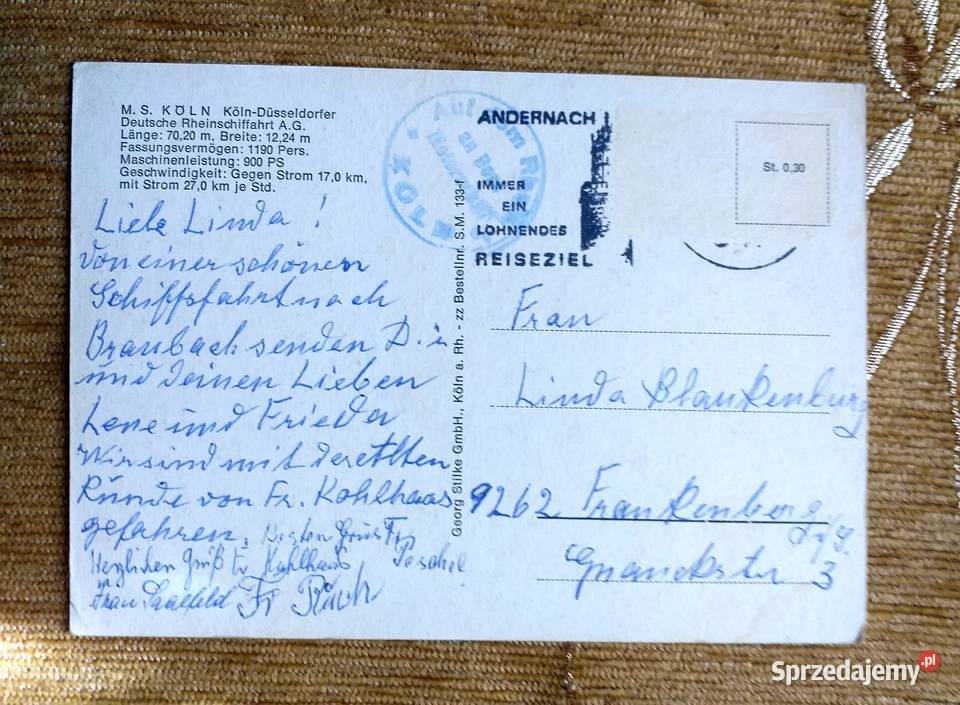 M.S. KÖLN Köln-Düsseldorfer
Deutsche Rheinschiffahrt A.G.
Länge: 70,20 m, Breite: 12,24 m
Fassungsvermögen: 1190 Pers.
Maschinenleistung: 900 PS
Geschwindigkeit: Gegen Strom 17,0 km,
mit Strom 27,0 km je Std.
Liebe Linda!
Von einer schönen
Schiffsfahrt nach
Braubach senden D.
und deinen Lieben
Lene und Frieda
Wir sind mit der Alten
Runde von Fr. Kohlhaas
gefahren.
Herzlichen Gruß Fr. Kohlhaas
Frau Saalfeld Fr
Auf dem
KÖLN
Georg Stilke GmbH., Köln a. Rh. - zz Bestellnr. S.M. 133-f
ANDERNACH
IMMER
EIN
LOHNENDES
REISEZIEL
St. 0,30
Frau
Linda Blankenburg
9262 Frankenberg
3
Sprzedajemy.pl